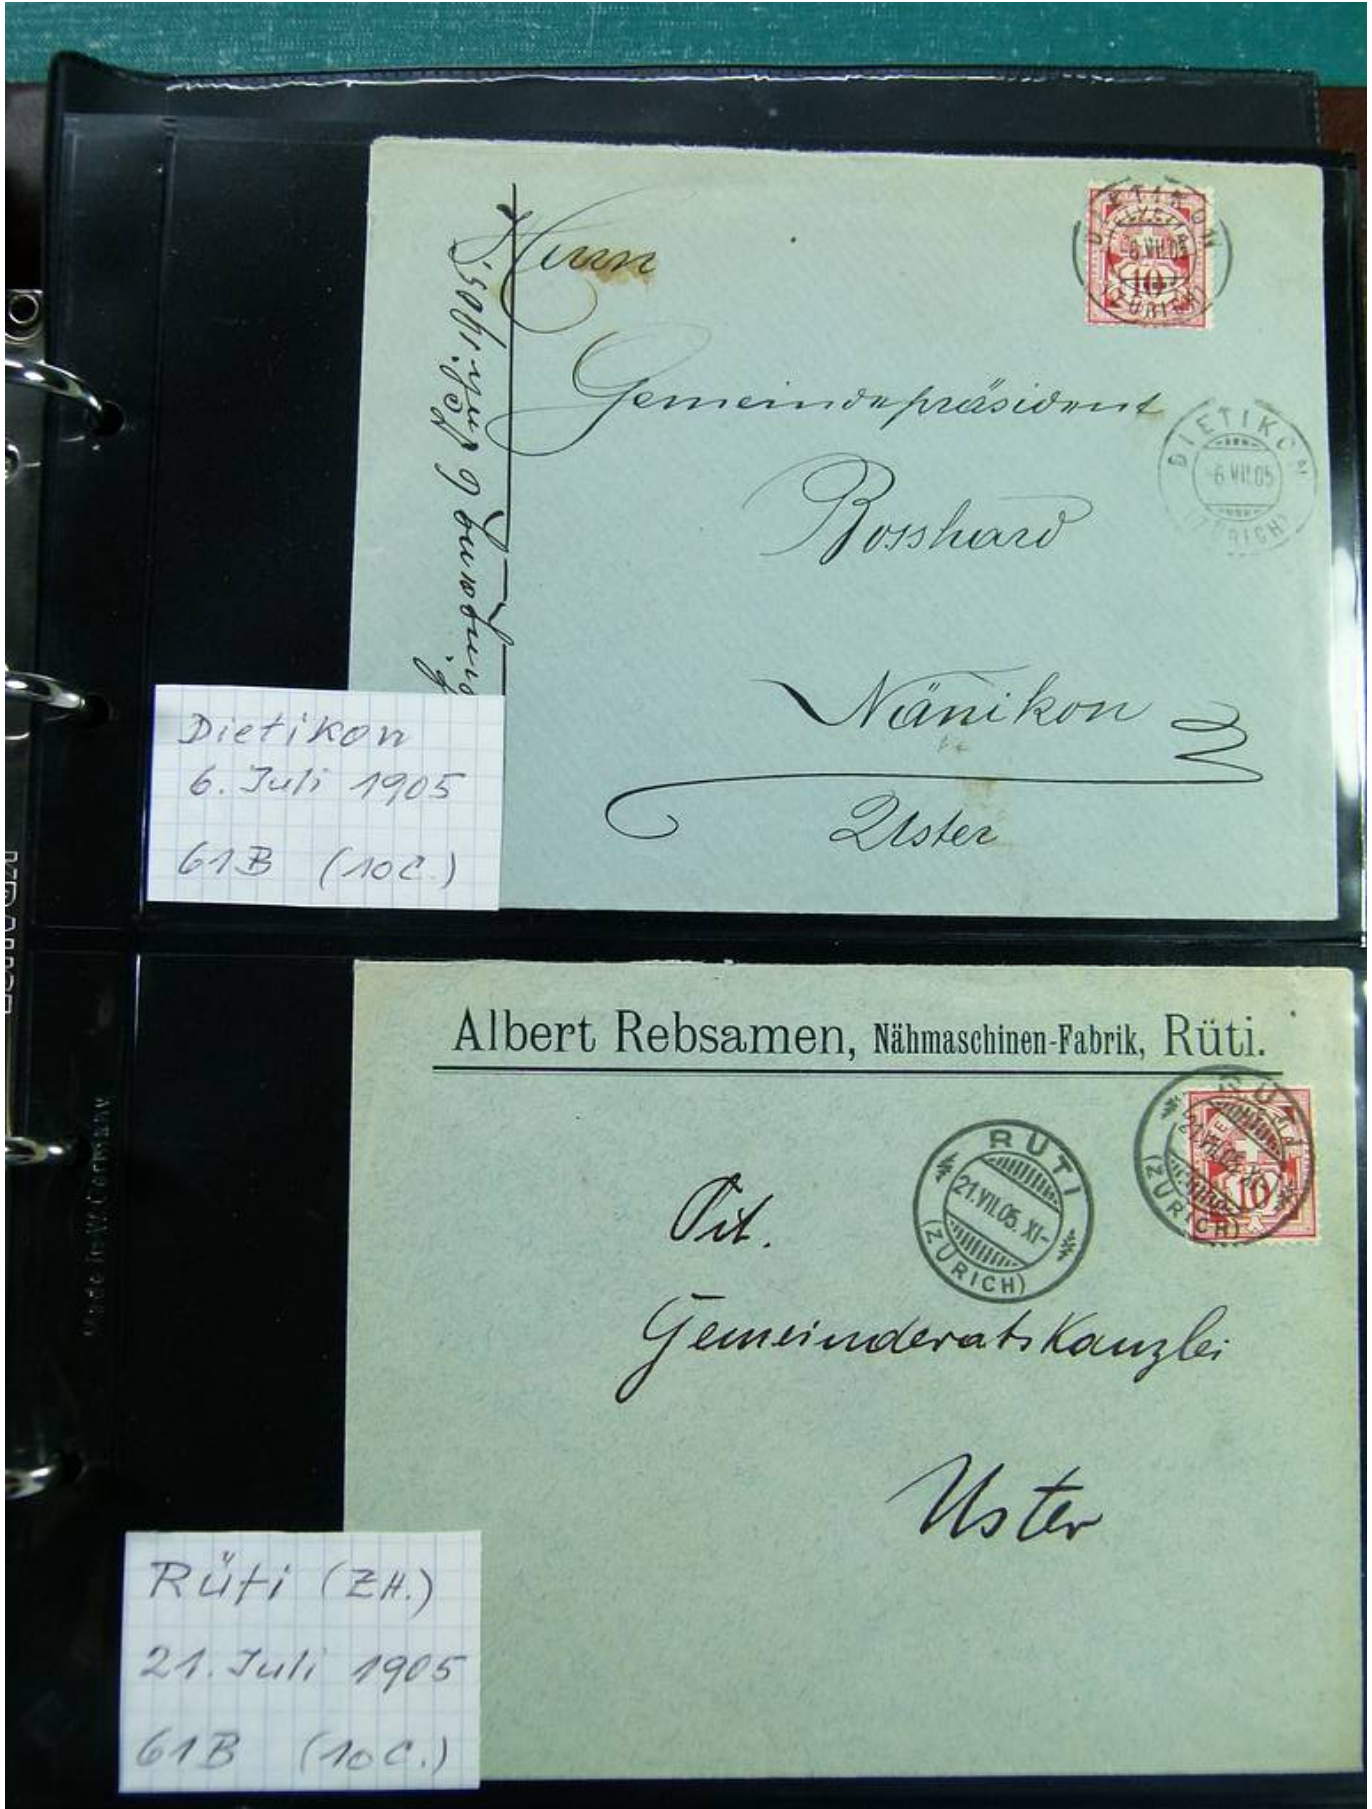 Herrn
Gemeindepräsident
Bosshard
Nänikon
Uster
DIETIKON
HELVETIA
-6.VII.05
10
(ZÜRICH)
DIETIKON
-6.VII.05
(ZÜRICH)
Dietikon
6. Juli 1905
61B (10C.)
Albert Rebsamen, Nähmaschinen-Fabrik, Rüti.
RÜTI
21.VII.05.XI-
(ZÜRICH)
RÜTI
21.VII.05.XI-
10
(ZÜRICH)
Tit.
Gemeinderatskanzlei
Uster
Rüti (ZH.)
21. Juli 1905
61B (10C.)
Made in W.Germany